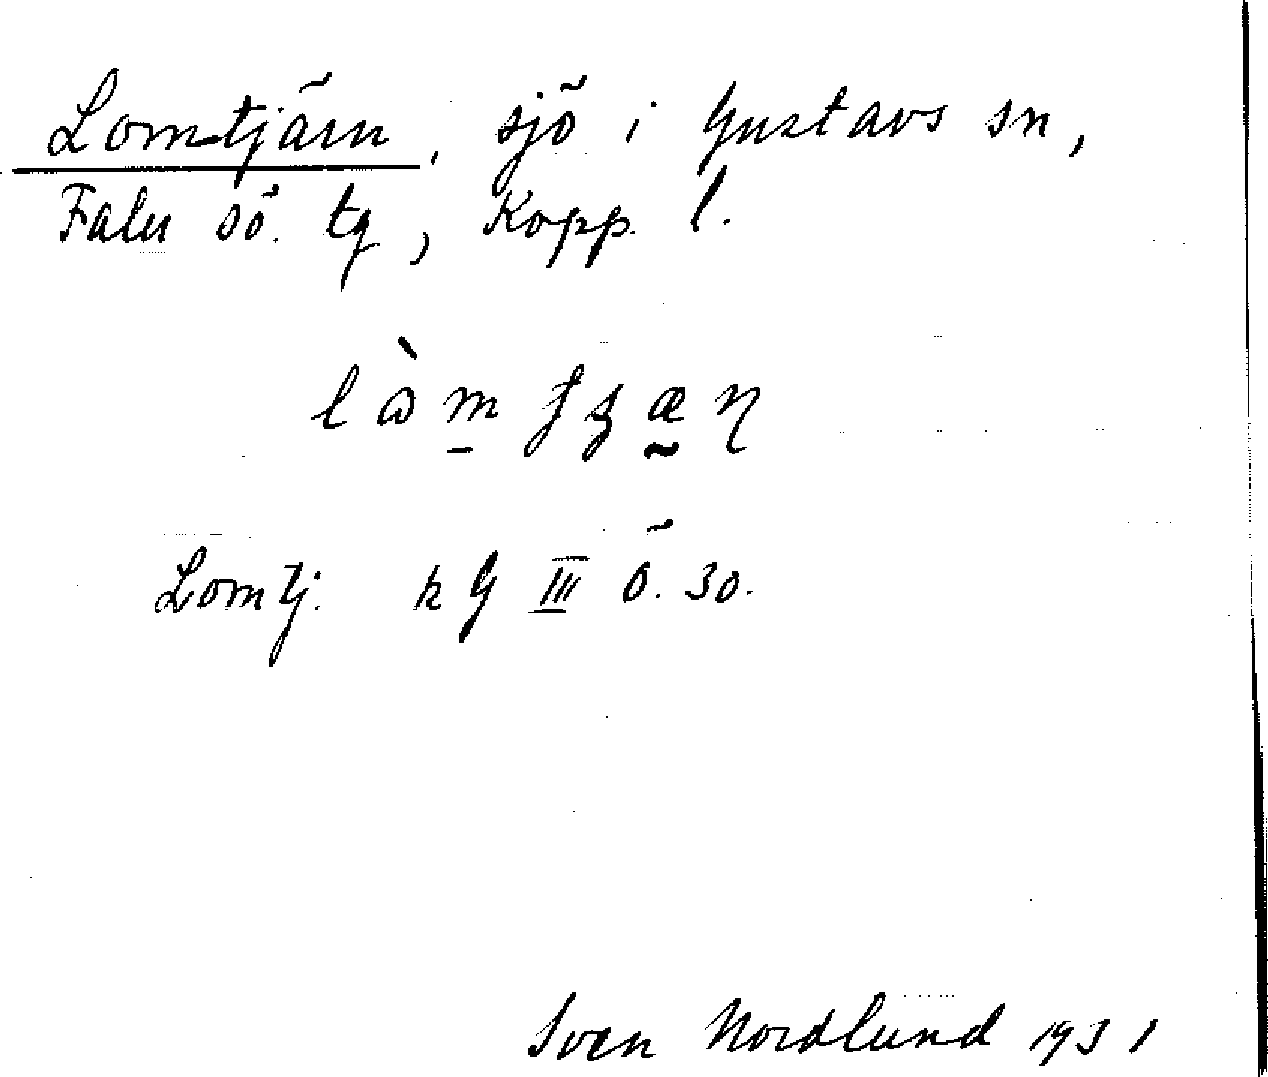 Lomtjärn, sjö i Gustavs sn,
Falu sö. tg, Kopp. l.
Lomtj. kG III Ö. 30.
Sven Nordlund 1931